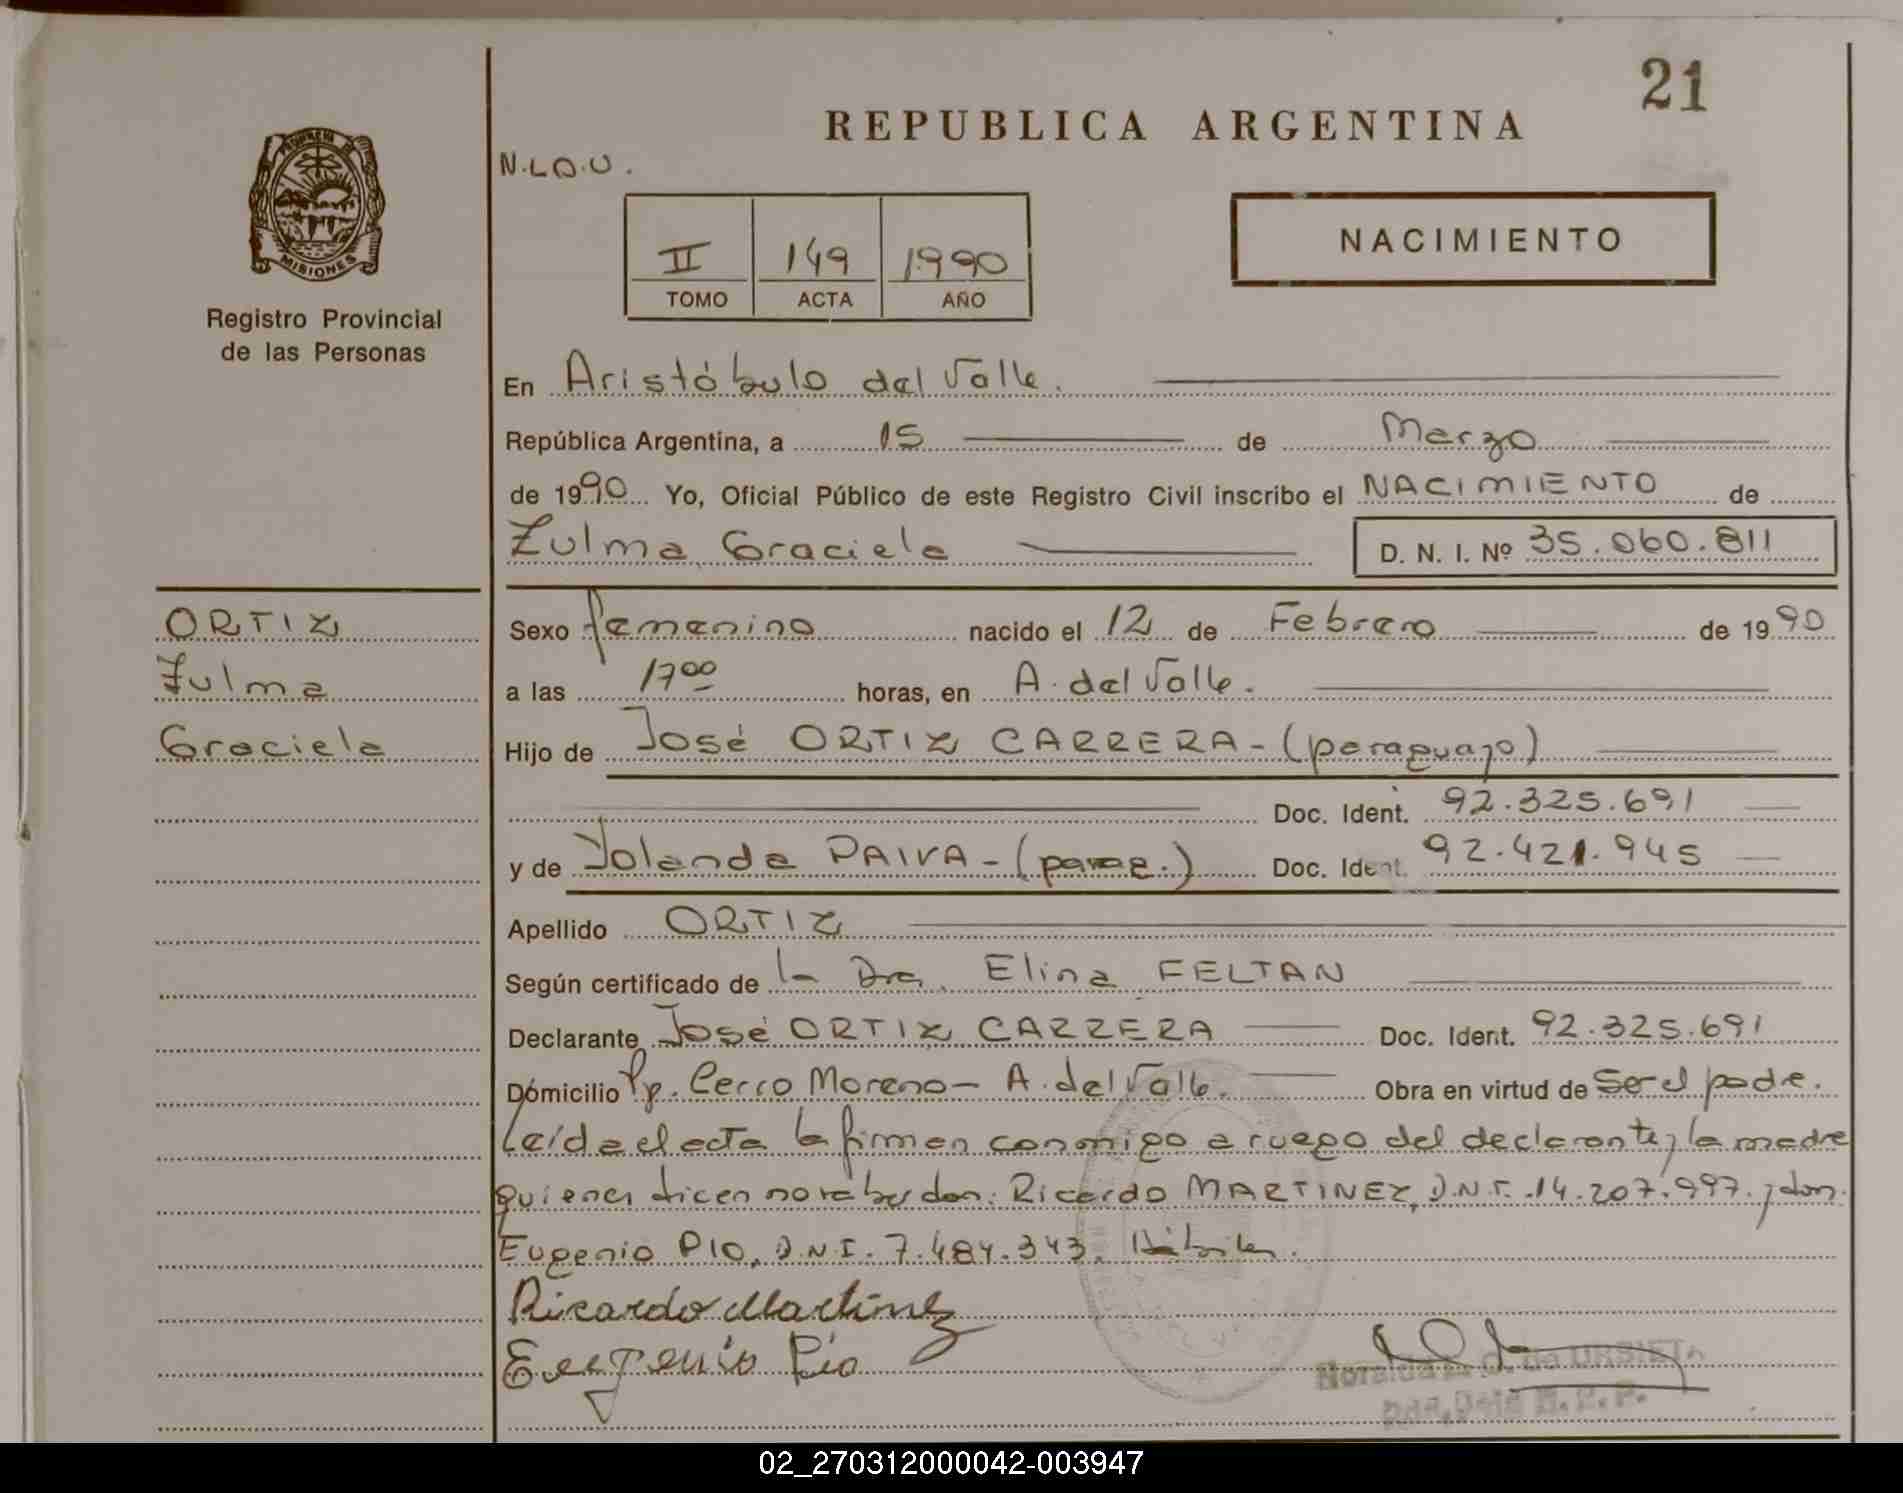 21
REPUBLICA ARGENTINA
PROVINCIA DE
MISIONES
N.L.O.U.
NACIMIENTO
II 149 1990
TOMO ACTA AÑO
Registro Provincial
de las Personas
En Aristóbulo del Valle.
República Argentina, a 15 de Marzo
de 1990 Yo, Oficial Público de este Registro Civil inscribo el NACIMIENTO de
Zulma Graciela D. N. I. Nº 35.060.811
ORTIZ
Zulma
Graciela
Sexo femenino nacido el 12 de Febrero de 1990
a las 17 00 horas, en A. del Valle.
Hijo de José ORTIZ CARRERA - (paraguayo)
Doc. Ident. 92.325.691
y de Yolanda PAIVA - (parag.) Doc. Ident. 92.421.945
Apellido ORTIZ
Según certificado de la Dra. Elina FELTAN
Declarante José ORTIZ CARRERA Doc. Ident. 92.325.691
Domicilio Pp. Cerro Moreno - A. del Valle. Obra en virtud de ser el padre.
Leída el acta la firman conmigo a ruego del declarante y la madre
quienes dicen no saber don: Ricardo MARTINEZ, D.N.I. 14.207.997. y don
Eugenio PIO, D.N.I. 7.484.343. Hábiles.
Ricardo Martinez
Eugenio Pío
de URBIETA
R.P.P.
02_270312000042-003947